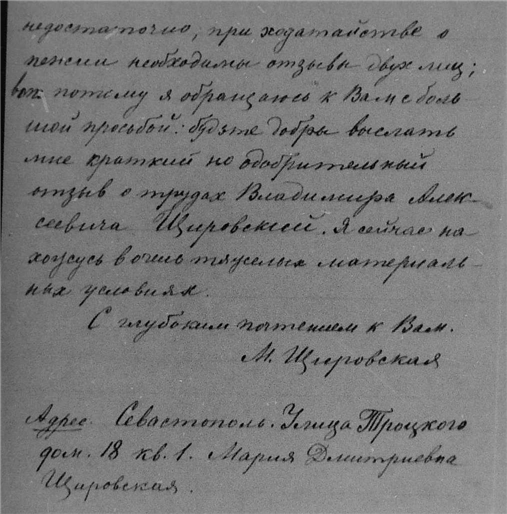 недостаточно, при ходатайстве о
пенсии необходимы отзывы двух лиц;
вот потому я обращаюсь к Вам с боль-
шой просьбой: будьте добры выслать
мне краткий но одобрительный
отзыв о трудах Владимира Алек-
сеевича Щировский. Я сейчас на-
хожусь в очень тяжелых материаль-
ных условиях.
С глубоким почтением к Вам.
М. Щировская
Адрес. Севастополь. Улица Троцкого
дом. 18 кв. 1. Мария Дмитриевна
Щировская.